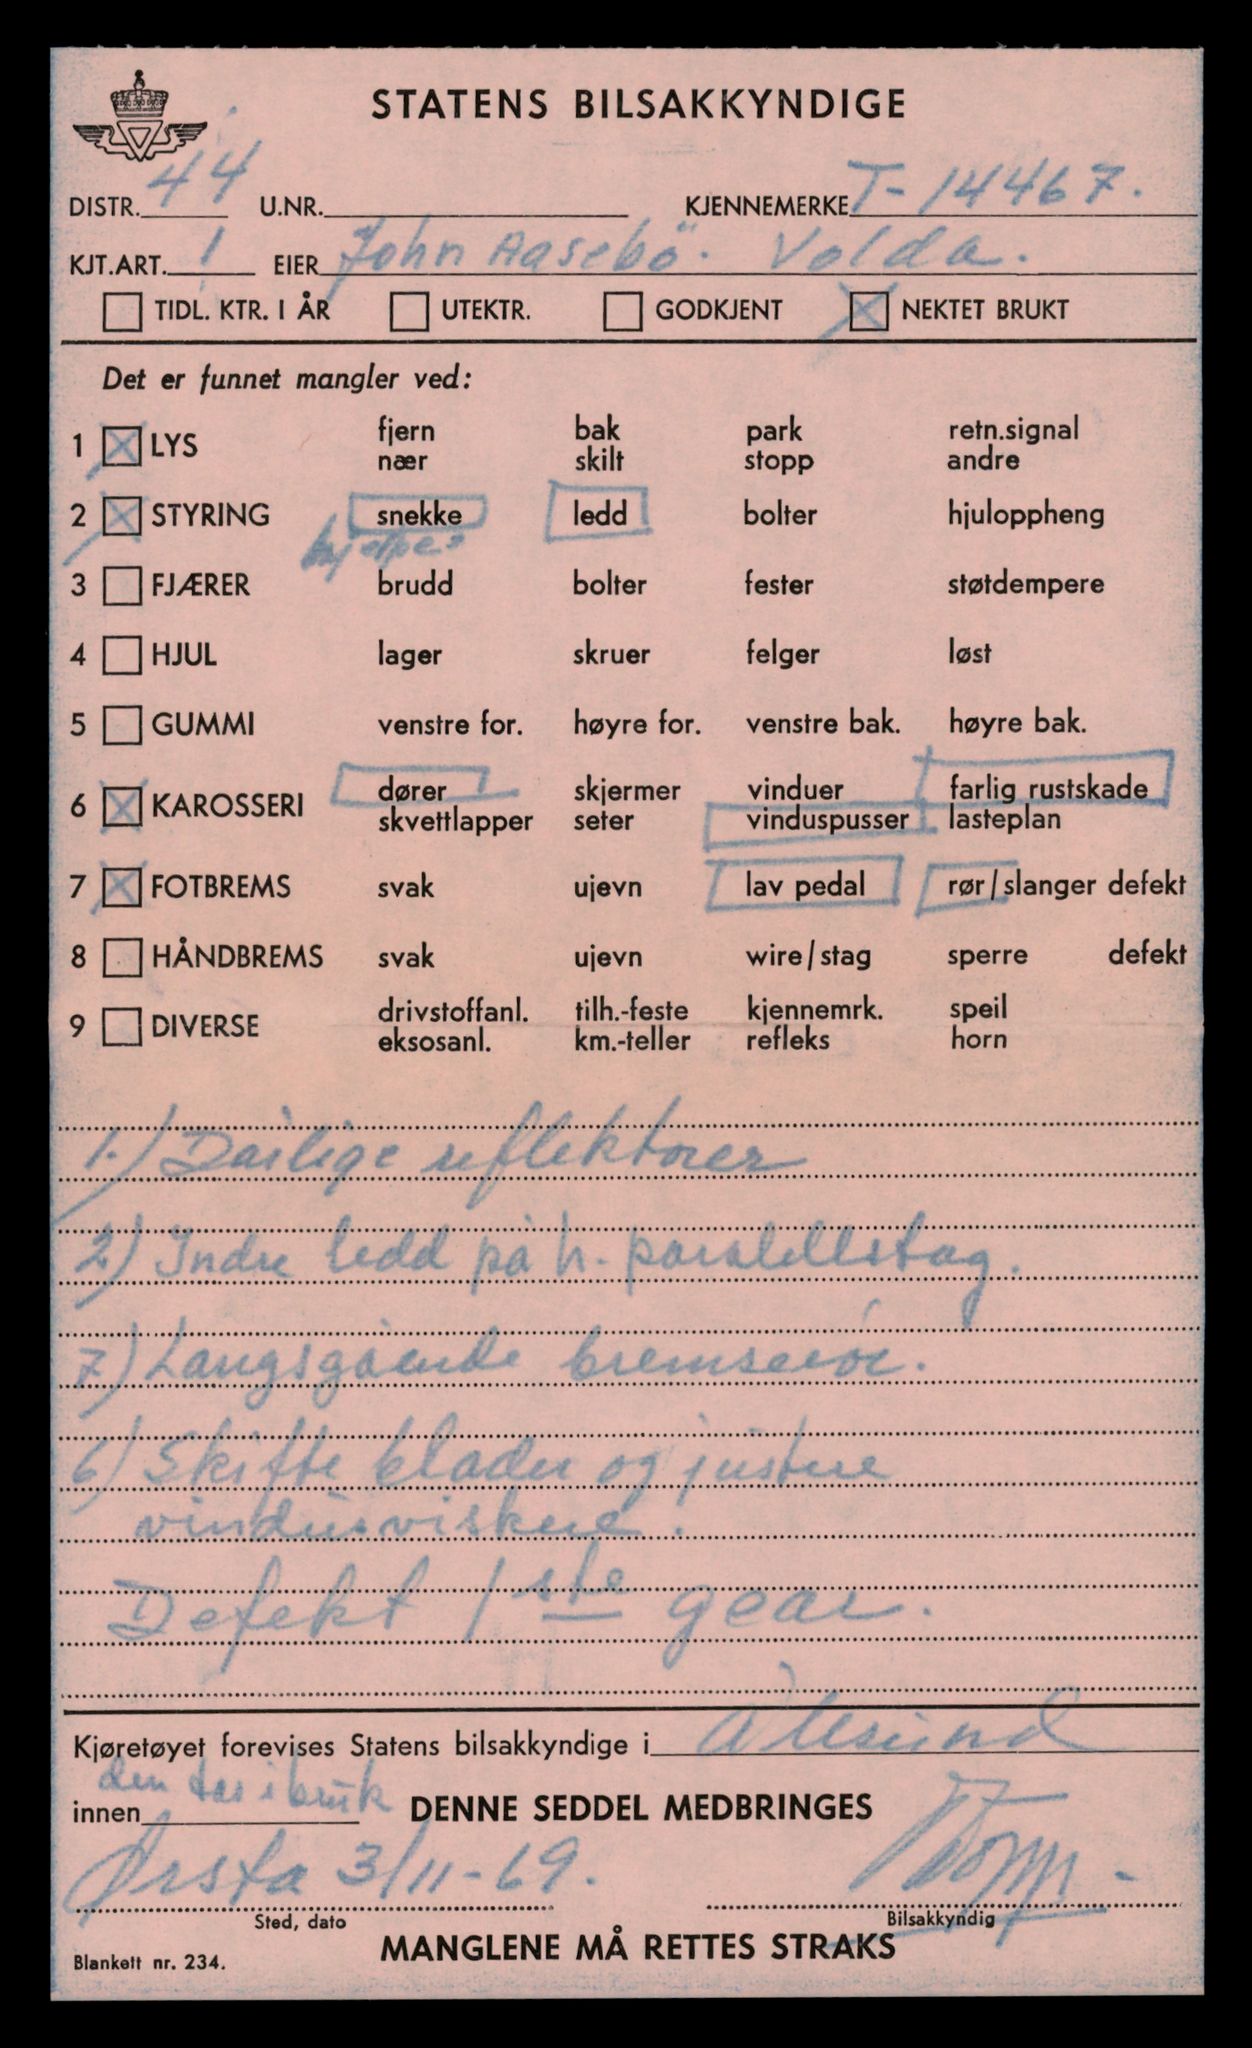 STATENS BILSAKKYNDIGE
DISTR. 44 U.NR. KJENNEMERKE T-14467.
KJT.ART. 1 EIER John Aasebö. Volda.
TIDL. KTR. I ÅR UTEKTR. GODKJENT NEKTET BRUKT
Det er funnet mangler ved:
1 LYS fjern bak park retn.signal
nær skilt stopp andre
2 STYRING snekke ledd bolter hjuloppheng
hjelpe
3 FJÆRER brudd bolter fester støtdempere
4 HJUL lager skruer felger løst
5 GUMMI venstre for. høyre for. venstre bak. høyre bak.
6 KAROSSERI dører skjermer vinduer farlig rustskade
skvettlapper seter vinduspusser lasteplan
7 FOTBREMS svak ujevn lav pedal rør/slanger defekt
8 HÅNDBREMS svak ujevn wire/stag sperre defekt
9 DIVERSE drivstoffanl. tilh.-feste kjennemrk. speil
eksosanl. km.-teller refleks horn
1.) Dårlige reflektorer
2) Indre ledd på h. paralellstag.
7) Langsgående bremserör.
6) Skifte blader og justere
vindusviskere.
Defekt 1ste gear.
Kjøretøyet forevises Statens bilsakkyndige i Ålesund
den tas i bruk
innen DENNE SEDDEL MEDBRINGES
Ørsta 3/11-69.
Sted, dato Bilsakkyndig
MANGLENE MÅ RETTES STRAKS
Blankett nr. 234.